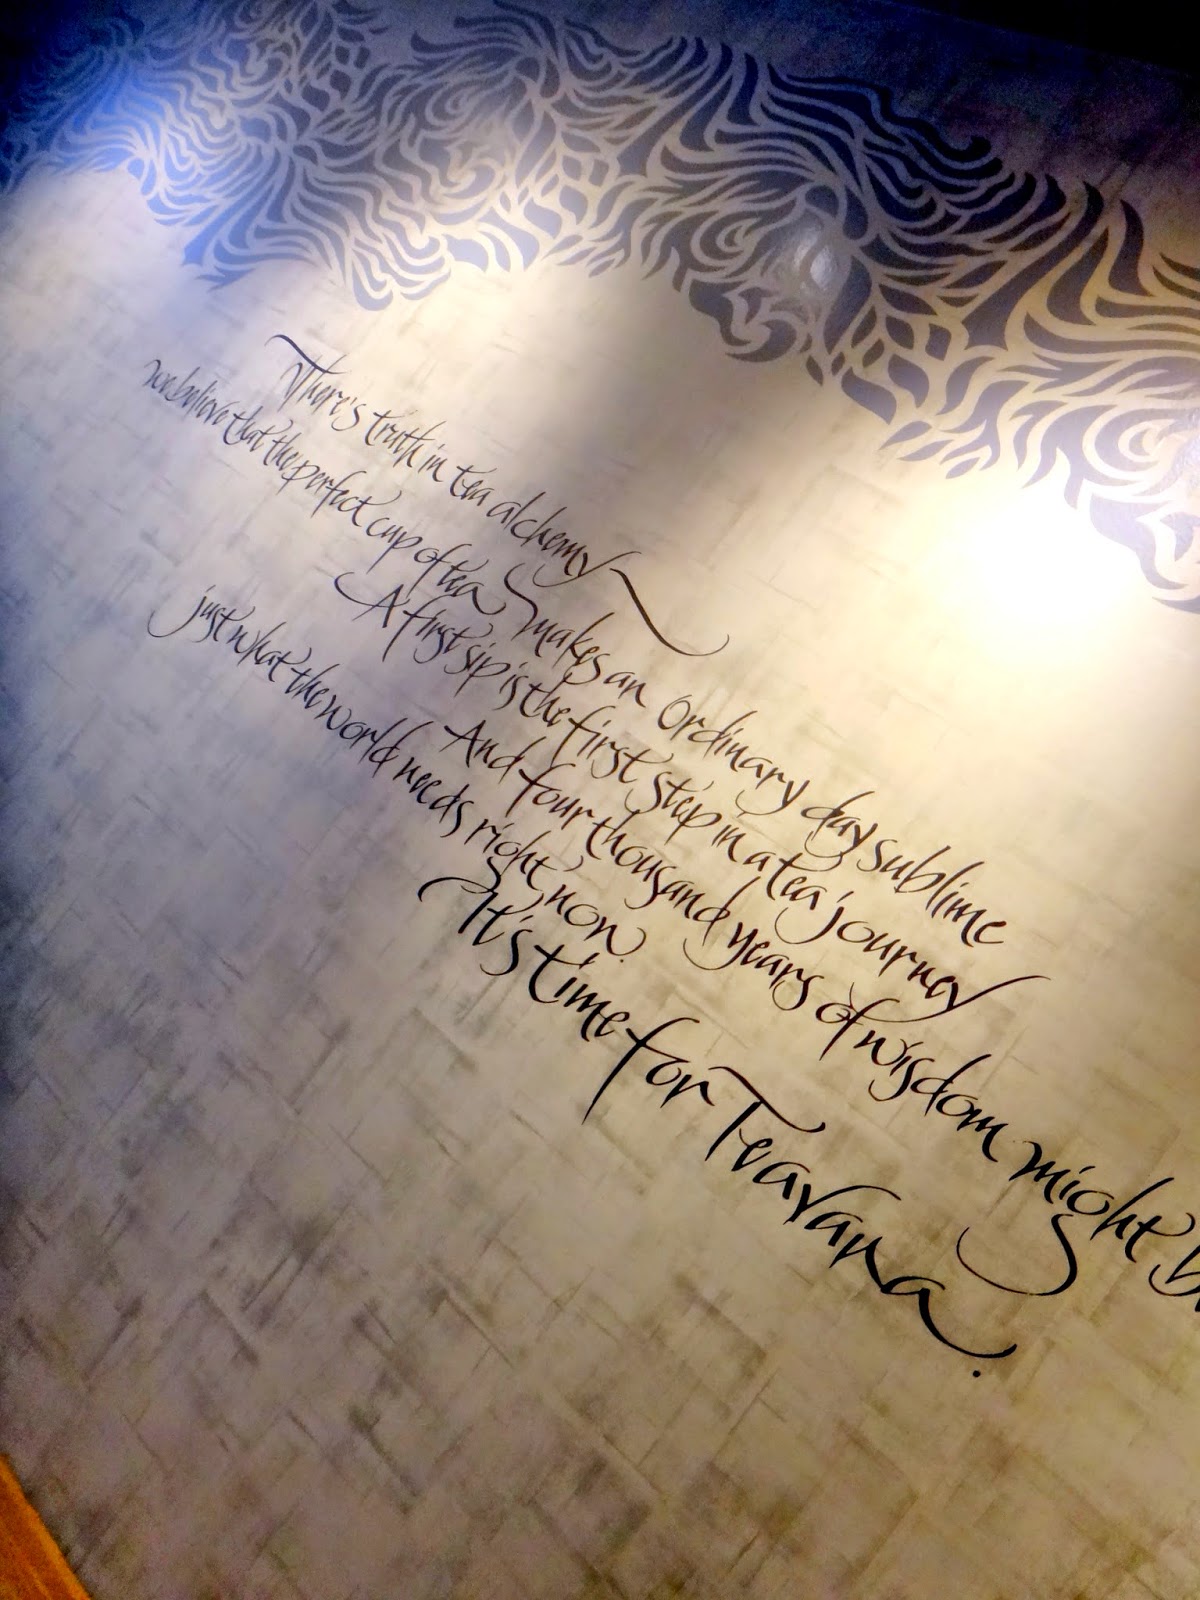 There's truth in tea alchemy
we believe that the perfect cup of tea makes an ordinary day sublime
A first sip is the first step in a tea journey
And four thousand years of wisdom might
just what the world needs right now.
It's time for Teavana.